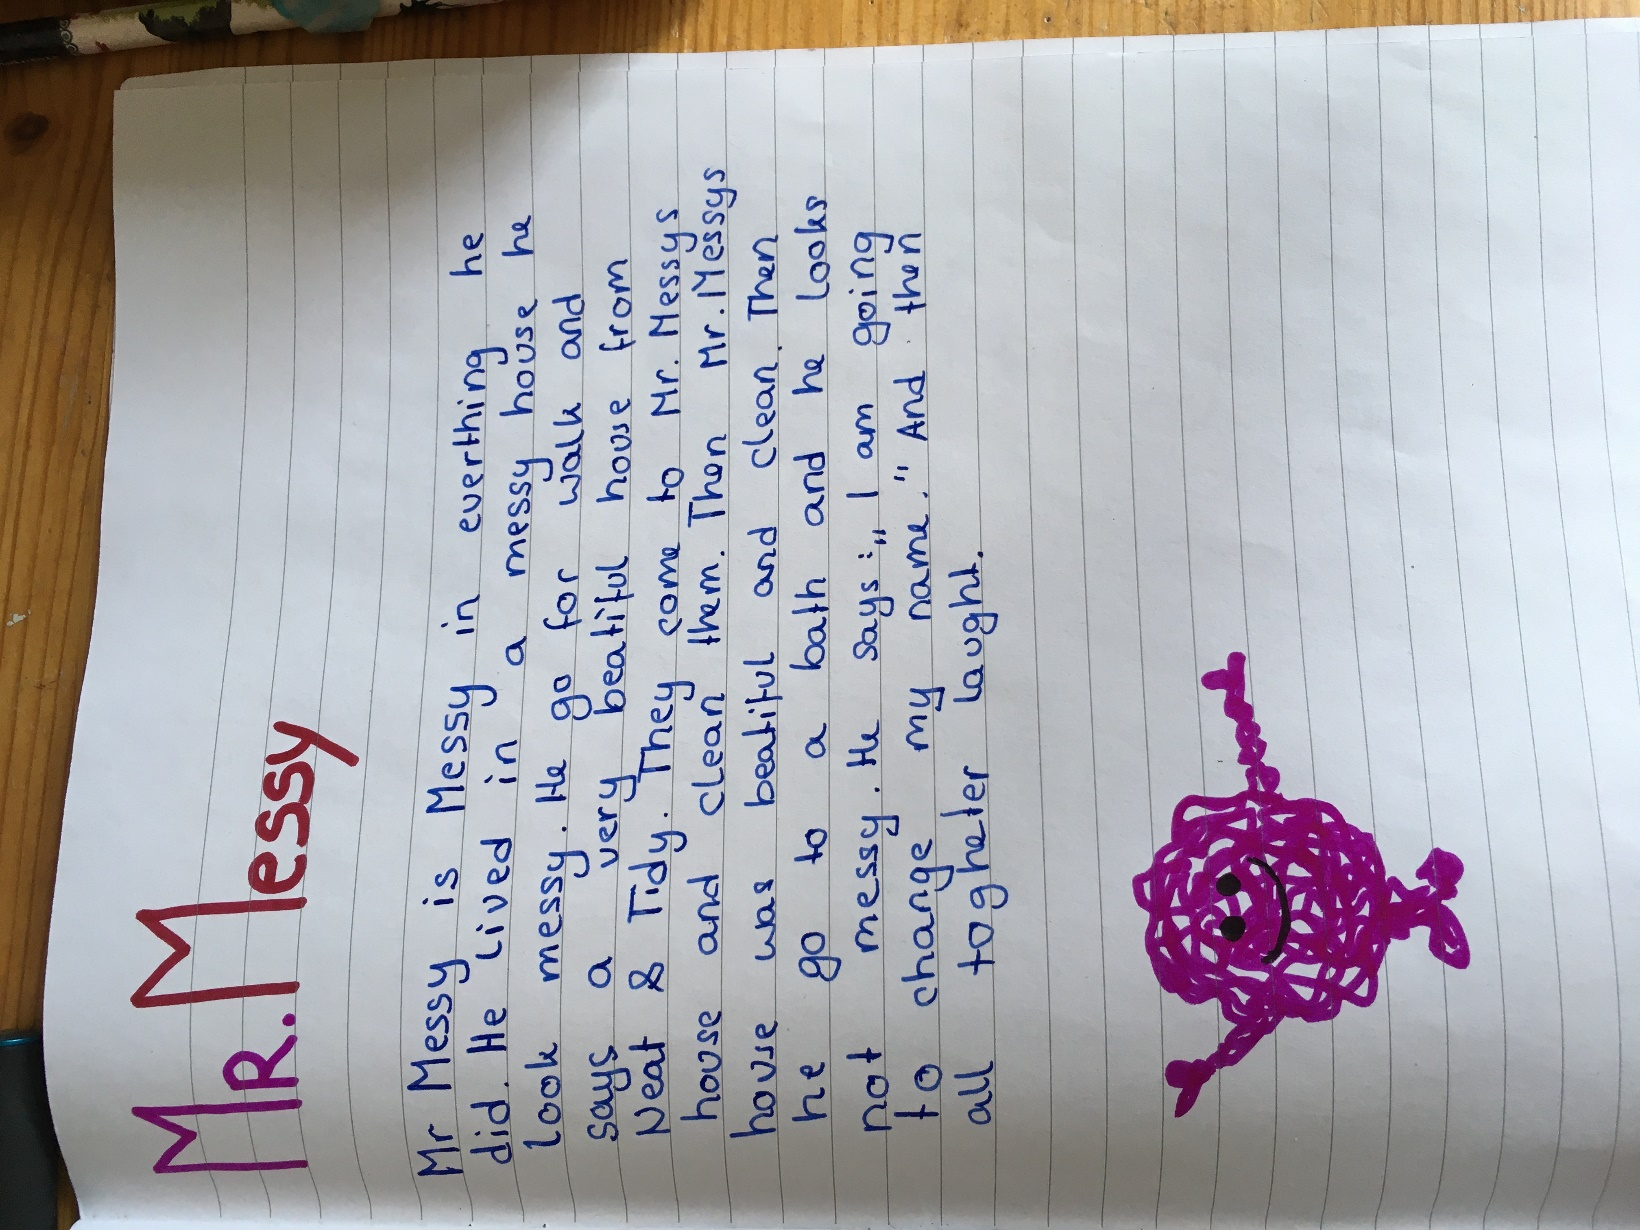 MR. Messy
Mr Messy is Messy in everthing he
did. He lived in a messy house he
look messy. He go for walk and
says a very beatiful house from
Neat & Tidy. They come to Mr. Messys
house and clean them. Then Mr. Messys
house was beatiful and clean. Then
he go to a bath and he looks
not messy. He says: „I am going
to change my name." And then
all togheter laught.